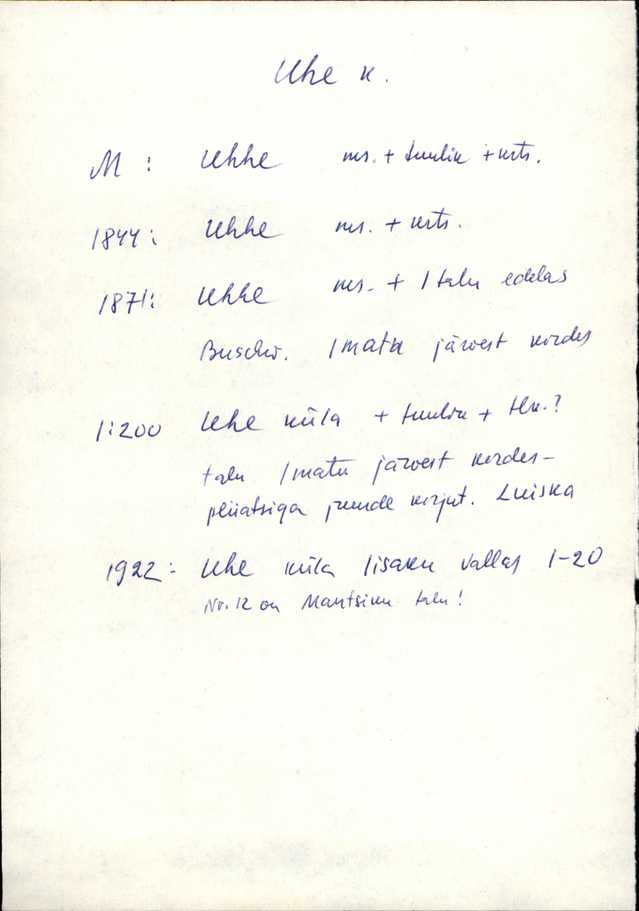 Uhe k.
M : Uhhe ms. + tuulik + krts.
1844: Uhhe ms. + krts.
1871: Uhhe ms. + 1 talu edelas
Buschw. Imatu järvest kirdes
1:200 Uhe küla + tuulik + tlk.?
talu Imatu järvest kirdes-
pliiatsiga juurde kirjut. Luiska
1922: Uhe küla Iisaku vallas 1-20
Nr. 12 on Mäntsiku talu!